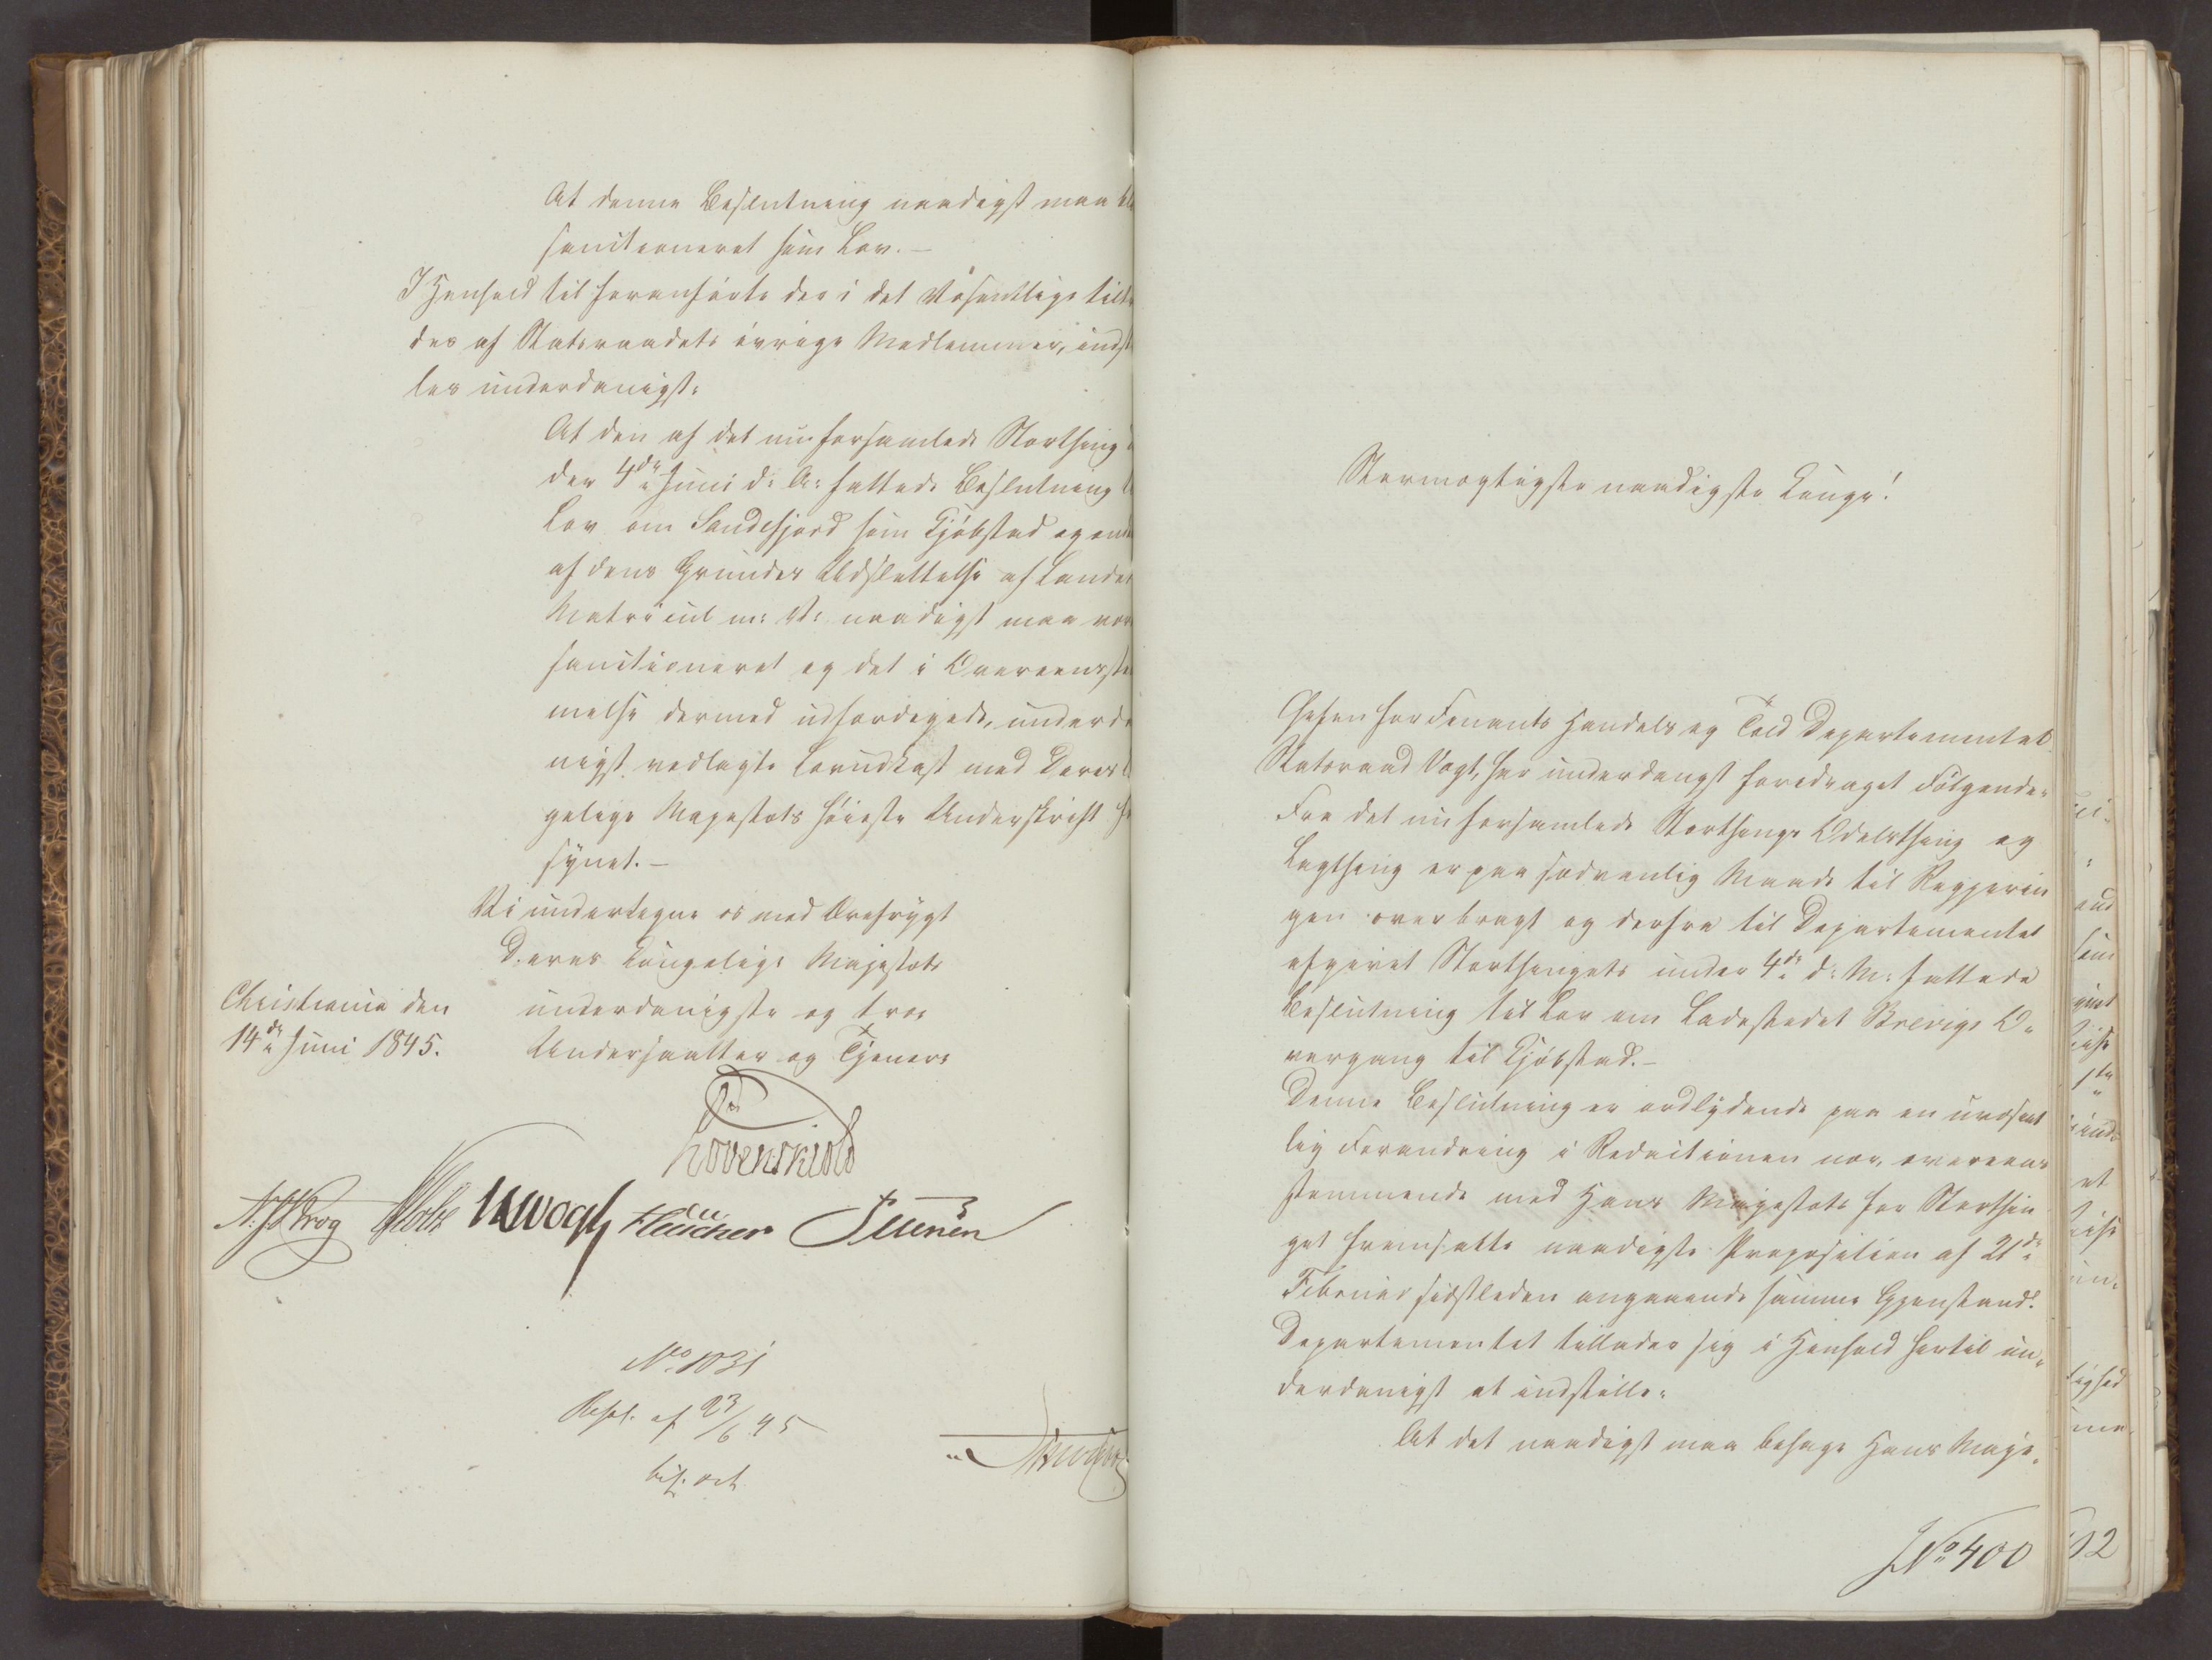 At denne Beslutning naadigst maa bl
sanctioneret som Lov. —
I Henhold til foranførte der i det Væsentlige tilt
des af Statsraadets øvrige Medlemmer, indst
les underdanigst:
At den af det nu forsamlede Storthing
den 4de Juni d: A: fattede Beslutning
Lov om Sandefjord som Kjøbstad og om
af dens Grunder Udslettelse af Landet
Matricul m: V: naadigst maa vor
sanctioneret og det i Overeensste
melse dermed udfærdigede, underda
nigst vedlagte Lovudkast med Deres
gelige Majestæts høieste Underskrift
synet. —
Vi undertegne os med Ærefrygt
Deres Kongelige Majestæts
Christiania den underdanigste og troe
14de Juni 1845. Undersaatter og Tjenere
Løvenskiold
N. J. Krog Holst JHVogt Fleischer
No 1031
Resol. af 23/6 45
Stormægtigste naadigste Konge!
Chefen for Finants Handels og Told Departementet
Statsraad Vogt, har underdanigst foredraget Følgende:
Fra det nu forsamlede Storthings Odelsthing og
Lagthing er paa sædvanlig Maade til Regjerin
gen overbragt og derfra til Departementet
afgivet Storthingets under 4de d: M: fattede
Beslutning til Lov om Ladestedet Brevigs O-
vergang til Kjøbstad. —
Denne Beslutning er ordlydende paa en uvæsent
lig Forandring i Redactionen nær, overeens
stemmende med Hans Majestæts for Storthin
get fremsatte naadigste Proposition af 21de
Februar sidstleden angaaende samme Gjenstand.
Departementet tillader sig i Henhold hertil un-
derdanigst at indstille:
At det naadigst maa behage Hans Maje-
No 400